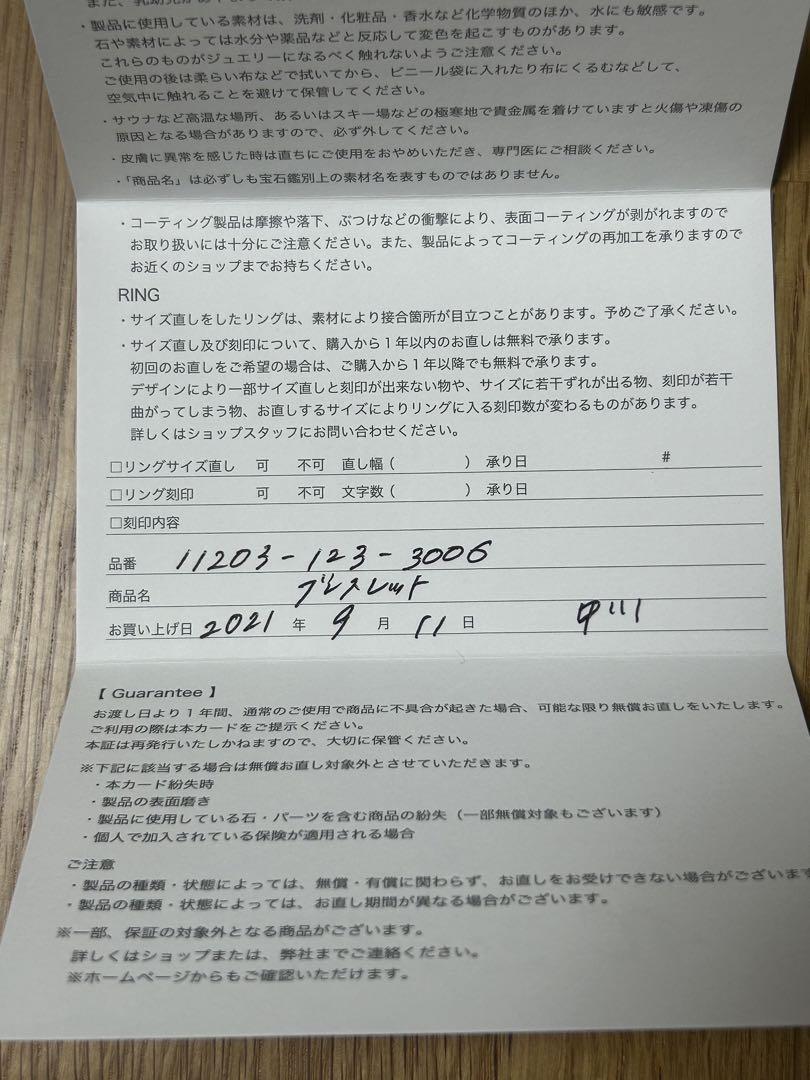 ・製品に使用している素材は、洗剤・化粧品・香水など化学物質のほか、水にも敏感です。
石や素材によっては水分や薬品などと反応して変色を起こすものがあります。
これらのものがジュエリーになるべく触れないようご注意ください。
ご使用の後は柔らい布などで拭いてから、ビニール袋に入れたり布にくるむなどして、
空気中に触れることを避けて保管してください。
・サウナなど高温な場所、あるいはスキー場などの極寒地で貴金属を着けていますと火傷や凍傷の
原因となる場合がありますので、必ず外してください。
・皮膚に異常を感じた時は直ちにご使用をおやめいただき、専門医にご相談ください。
・「商品名」は必ずしも宝石鑑別上の素材名を表すものではありません。
・コーティング製品は摩擦や落下、ぶつけなどの衝撃により、表面コーティングが剥がれますので
お取り扱いには十分にご注意ください。また、製品によってコーティングの再加工を承りますので
お近くのショップまでお持ちください。
RING
・サイズ直しをしたリングは、素材により接合箇所が目立つことがあります。予めご了承ください。
・サイズ直し及び刻印について、購入から1年以内のお直しは無料で承ります。
初回のお直しをご希望の場合は、ご購入から1年以降でも無料で承ります。
デザインにより一部サイズ直しと刻印が出来ない物や、サイズに若干ずれが出る物、刻印が若干
曲がってしまう物、お直しするサイズによりリングに入る刻印数が変わるものがあります。
詳しくはショップスタッフにお問い合わせください。
□リングサイズ直し 可 不可 直し幅( ) 承り日 #
□リング刻印 可 不可 文字数( ) 承り日
□刻印内容
品番 11203-123-3006
商品名 ブレスレット
お買い上げ日 2021 年 9 月 11 日 中川
【 Guarantee 】
お渡し日より1年間、通常のご使用で商品に不具合が起きた場合、可能な限り無償お直しをいたします。
ご利用の際は本カードをご提示ください。
本証は再発行いたしかねますので、大切に保管ください。
※下記に該当する場合は無償お直し対象外とさせていただきます。
・本カード紛失時
・製品の表面磨き
・製品に使用している石・パーツを含む商品の紛失（一部無償対象もございます）
・個人で加入されている保険が適用される場合
ご注意
・製品の種類・状態によっては、無償・有償に関わらず、お直しをお受けできない場合がございます
・製品の種類・状態によっては、お直し期間が異なる場合がございます。
※一部、保証の対象外となる商品がございます。
詳しくはショップまたは、弊社までご連絡ください。
※ホームページからもご確認いただけます。